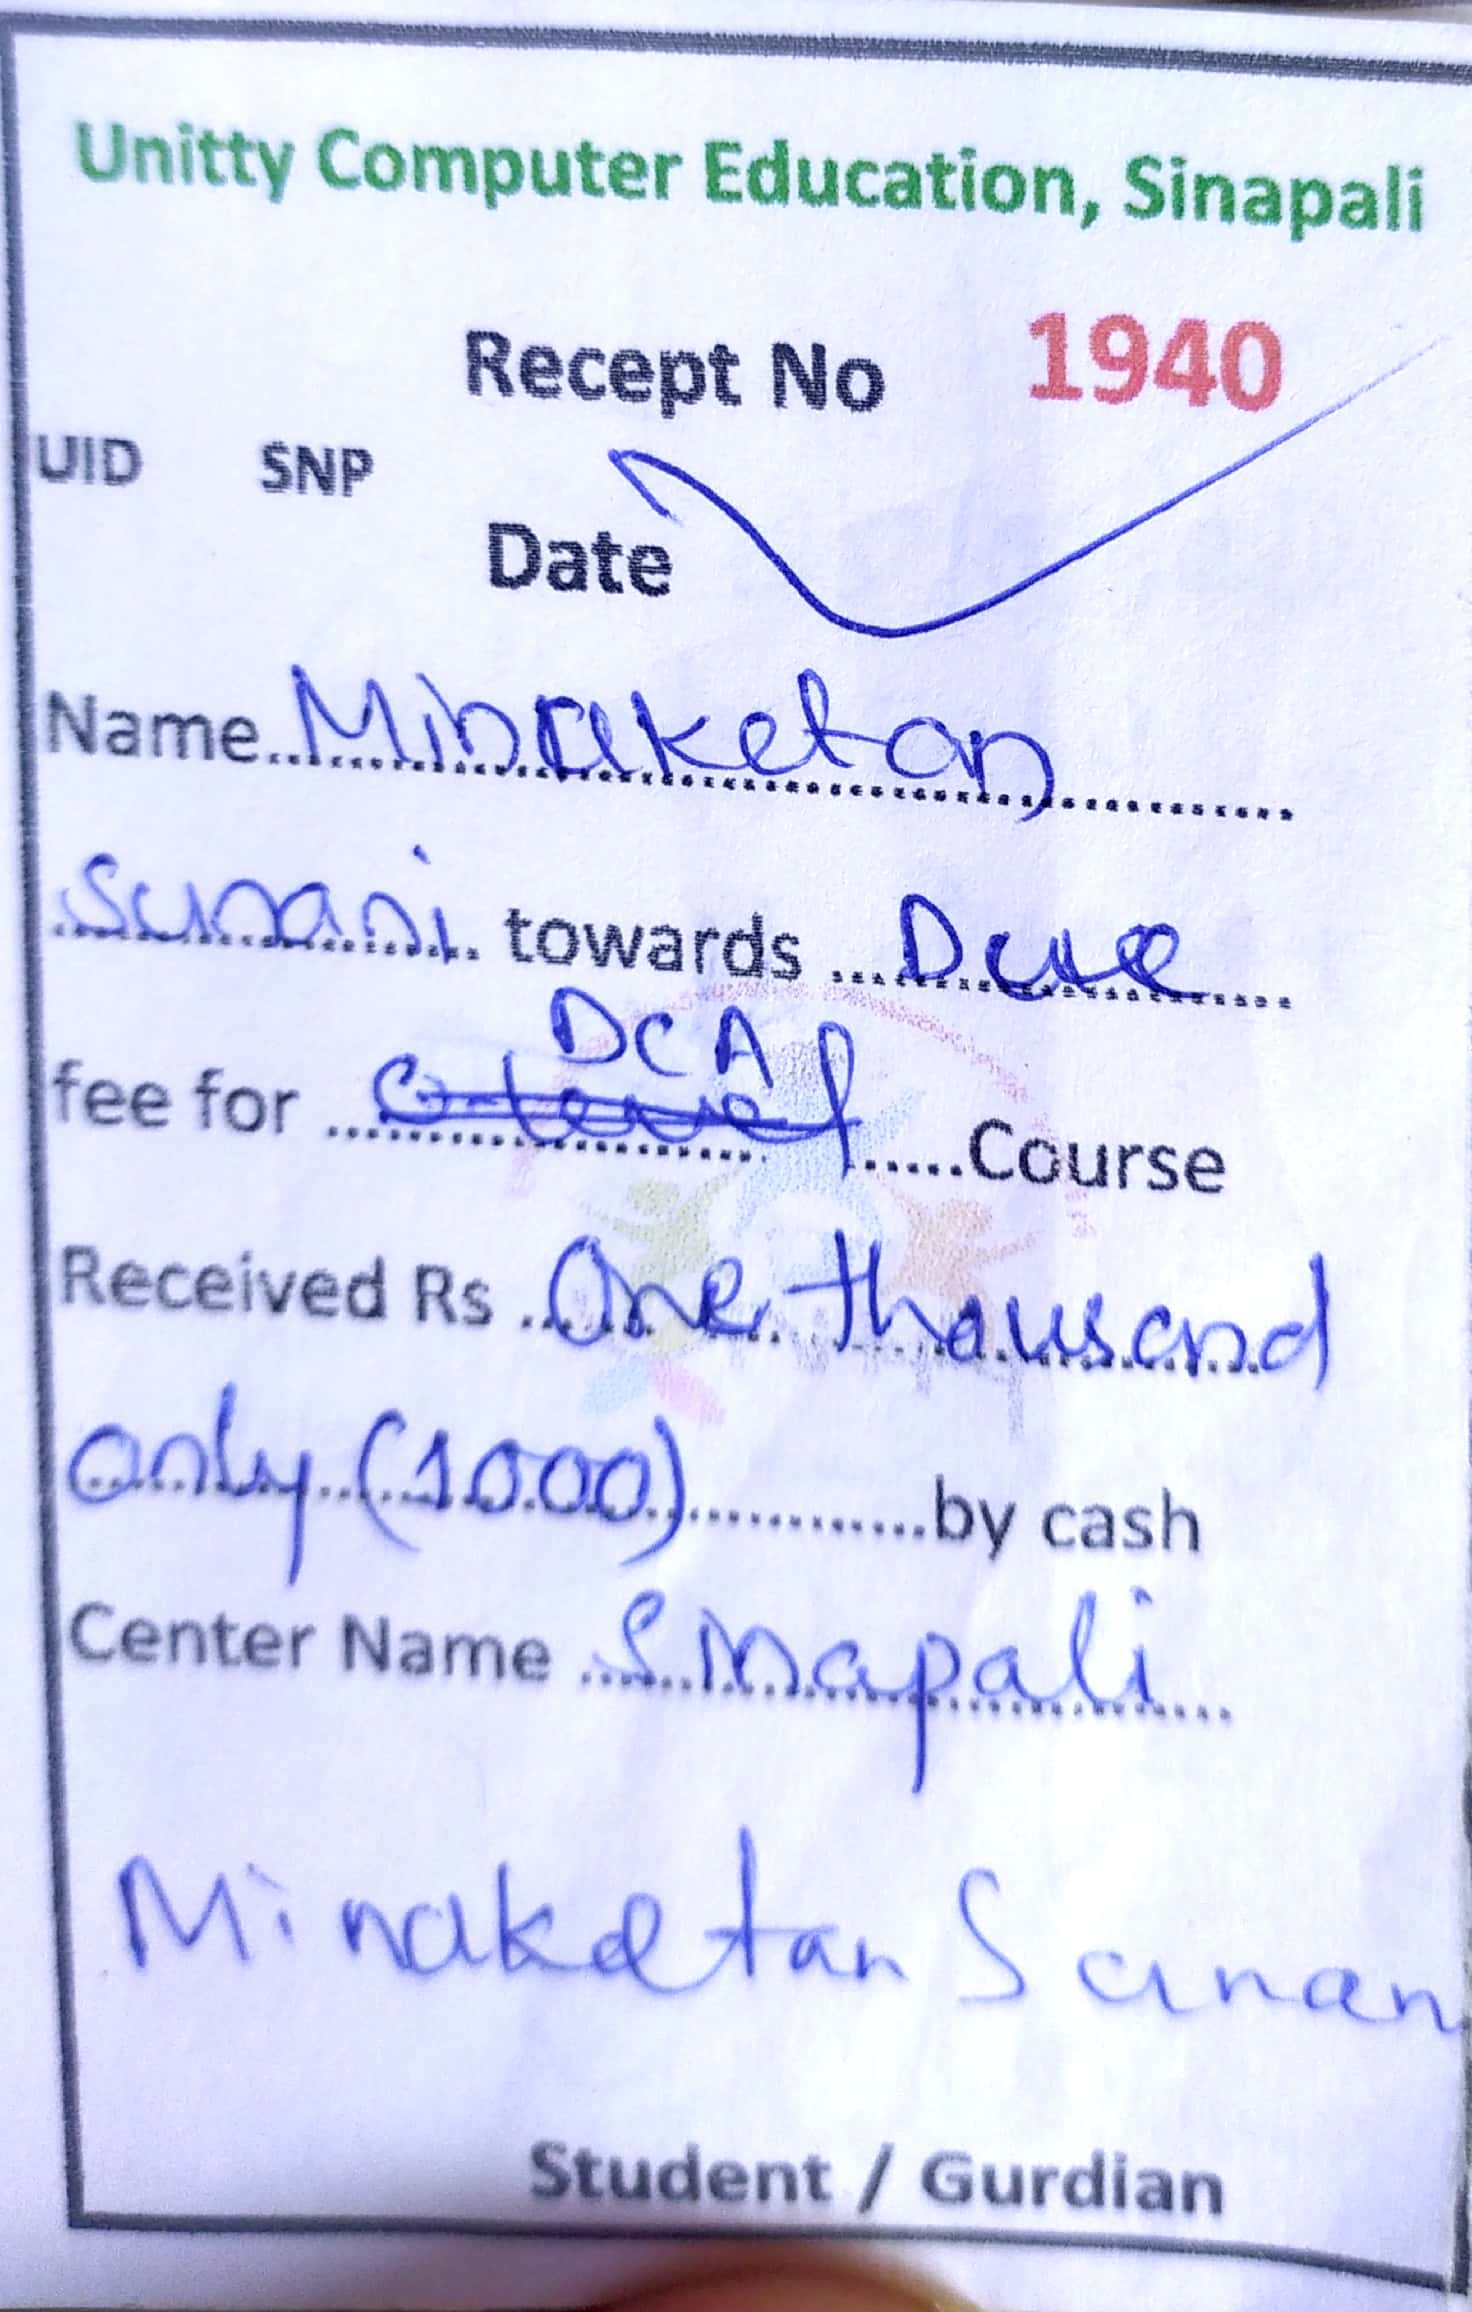 Unitty Computer Education, Sinapali
Recept No 1940
UID SNP
Date
Name Minaketan
Sunani towards Due
DCA
fee for O-level Course
Received Rs One thousand
only (1000) by cash
Center Name Sinapali
Minaketan Sunan
Student / Gurdian